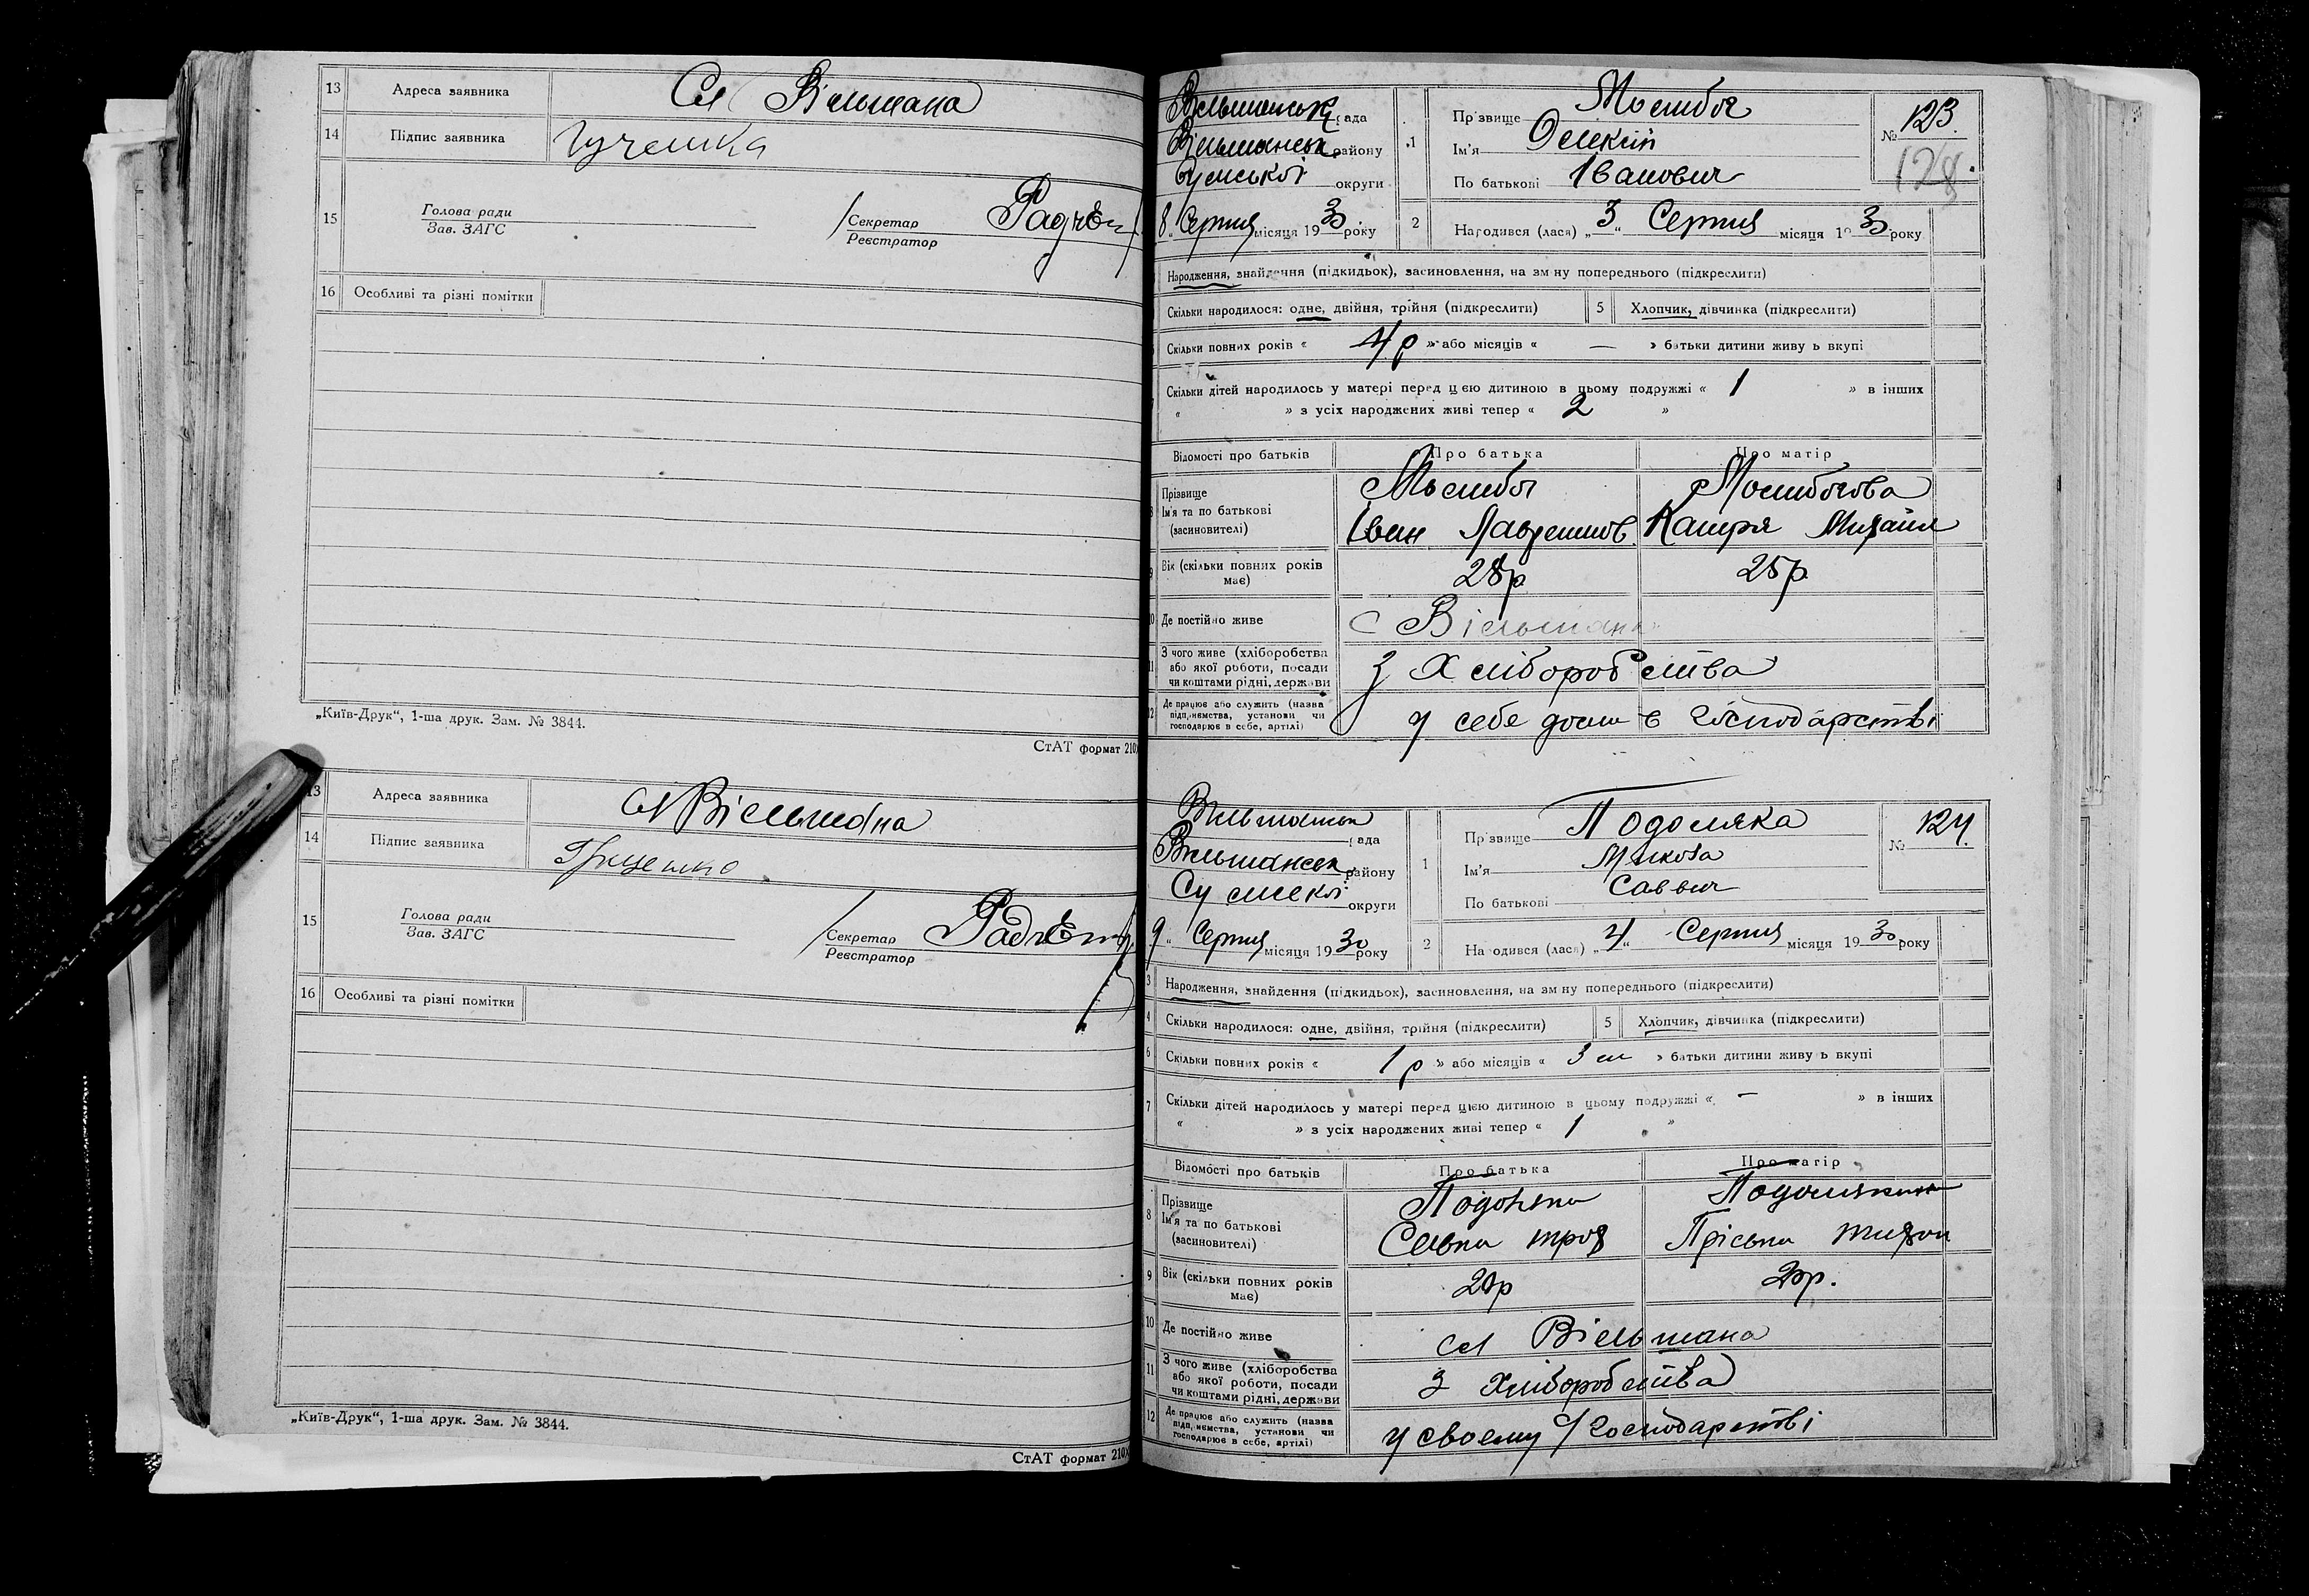 13 Адреса заявника Сл Вільшана
14 Підпис заявника
15 Голова ради
Зав. ЗАГС
Секретар
Реєстратор
16 Особливі та різні помітки
„Київ-Друк“, 1-ша друк. Зам. № 3844.
СтАТ формат 210
13 Адреса заявника Сл Вільшана
14 Підпис заявника Грищенко
15 Голова ради
Зав. ЗАГС
Секретар
Реєстратор
16 Особливі та різні помітки
„Київ-Друк“, 1-ша друк. Зам. № 3844.
СтАТ формат 210
Вільшанськ рада
Вільшанськ району
Сумської округи
8 „ Серпня місяця 19 30 року
1 Прізвище
Ім'я Олексій
По батькові Іванович
№ 123
128.
2 Народився (лася) „ 3 “ Серпня місяця 19 30 року
Народження, знайдення (підкидьок), засиновлення, на зміну попереднього (підкреслити)
Скільки народилося: одне, двійня, трійня (підкреслити) 5 Хлопчик, дівчинка (підкреслити)
Скільки повних років « 4 р » або місяців « — » батьки дитини живуть вкупі
Скільки дітей народилось у матері перед цією дитиною в цьому подружжі « 1 » в інших
« » з усіх народжених живі тепер « 2 »
Відомості про батьків Про батька Про матір
Прізвище
Ім'я та по батькові Іван Лаврентов Катря Михайл
(засиновителі)
Вік (скільки повних років має) 28р 25р
10 Де постійно живе С Вільшана
11 З чого живе (хліборобства або якої роботи, посади чи коштами рідні, держави З Хліборобства
12 Де працює або служить (назва підприємства, установи чи господарює в себе, артілі) у себе дома в господарстві
Вільшанськ рада
Вільшанськ району
Сумської округи
9 „ Серпня місяця 19 30 року
1 Прізвище Подоляка
Ім'я Микола
По батькові Саввич
№ 124.
2 Народився (лася) „ 4 “ Серпня місяця 19 30 року
3 Народження, знайдення (підкидьок), засиновлення, на зміну попереднього (підкреслити)
4 Скільки народилося: одне, двійня, трійня (підкреслити) 5 Хлопчик, дівчинка (підкреслити)
6 Скільки повних років « 1 р » або місяців « 3 м » батьки дитини живуть вкупі
7 Скільки дітей народилось у матері перед цією дитиною в цьому подружжі « - » в інших
« » з усіх народжених живі тепер « 1 »
Відомості про батьків Про батька Про матір
8 Прізвище Подоляка
Ім'я та по батькові Пріська
(засиновителі)
9 Вік (скільки повних років має) 20р.
10 Де постійно живе сл Вільшана
11 З чого живе (хліборобства або якої роботи, посади чи коштами рідні, держави З Хліборобства
12 Де працює або служить (назва підприємства, установи чи господарює в себе, артілі) у своєму с/господарстві